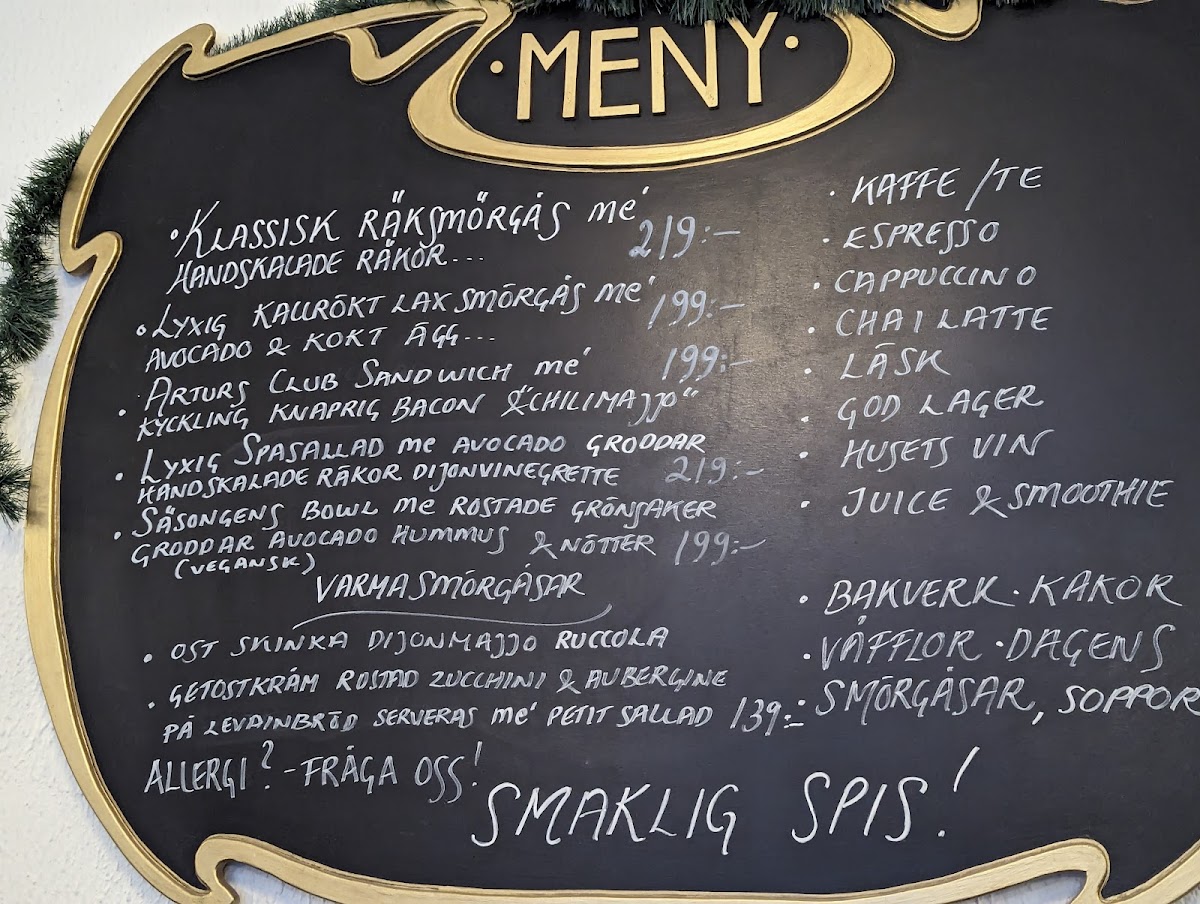 ·MENY·
·KLASSISK RÄKSMÖRGÅS mé
HANDSKALADE RÄKOR... 219:-
·LYXIG KALLRÖKT LAX SMÖRGÅS mé
AVOCADO & KOKT ÄGG... 199:-
·ARTURS CLUB SANDWICH mé 199:-
KYCKLING KNAPRIG BACON & "CHILIMAJJO"
·LYXIG SPASALLAD me AVOCADO GRODDAR
HANDSKALADE RÄKOR DIJONVINEGRETTE 219:-
·SÄSONGENS BOWL me ROSTADE GRÖNSAKER
GRODDAR AVOCADO HUMMUS & NÖTTER 199:-
(VEGANSK)
VARMA SMÖRGÅSAR
·OST SKINKA DIJONMAJJO RUCCOLA
·GETOSTKRÄM ROSTAD ZUCCHINI & AUBERGINE
PÅ LEVAINBRÖD SERVERAS mé PETIT SALLAD 139:-
ALLERGI? - FRÅGA OSS!
·KAFFE/TE
·ESPRESSO
·CAPPUCCINO
·CHAI LATTE
·LÄSK
·GOD LAGER
·HUSETS VIN
·JUICE & SMOOTHIE
·BAKVERK·KAKOR
·VÅFFLOR·DAGENS
SMÖRGÅSAR, SOPPOR
SMAKLIG SPIS!